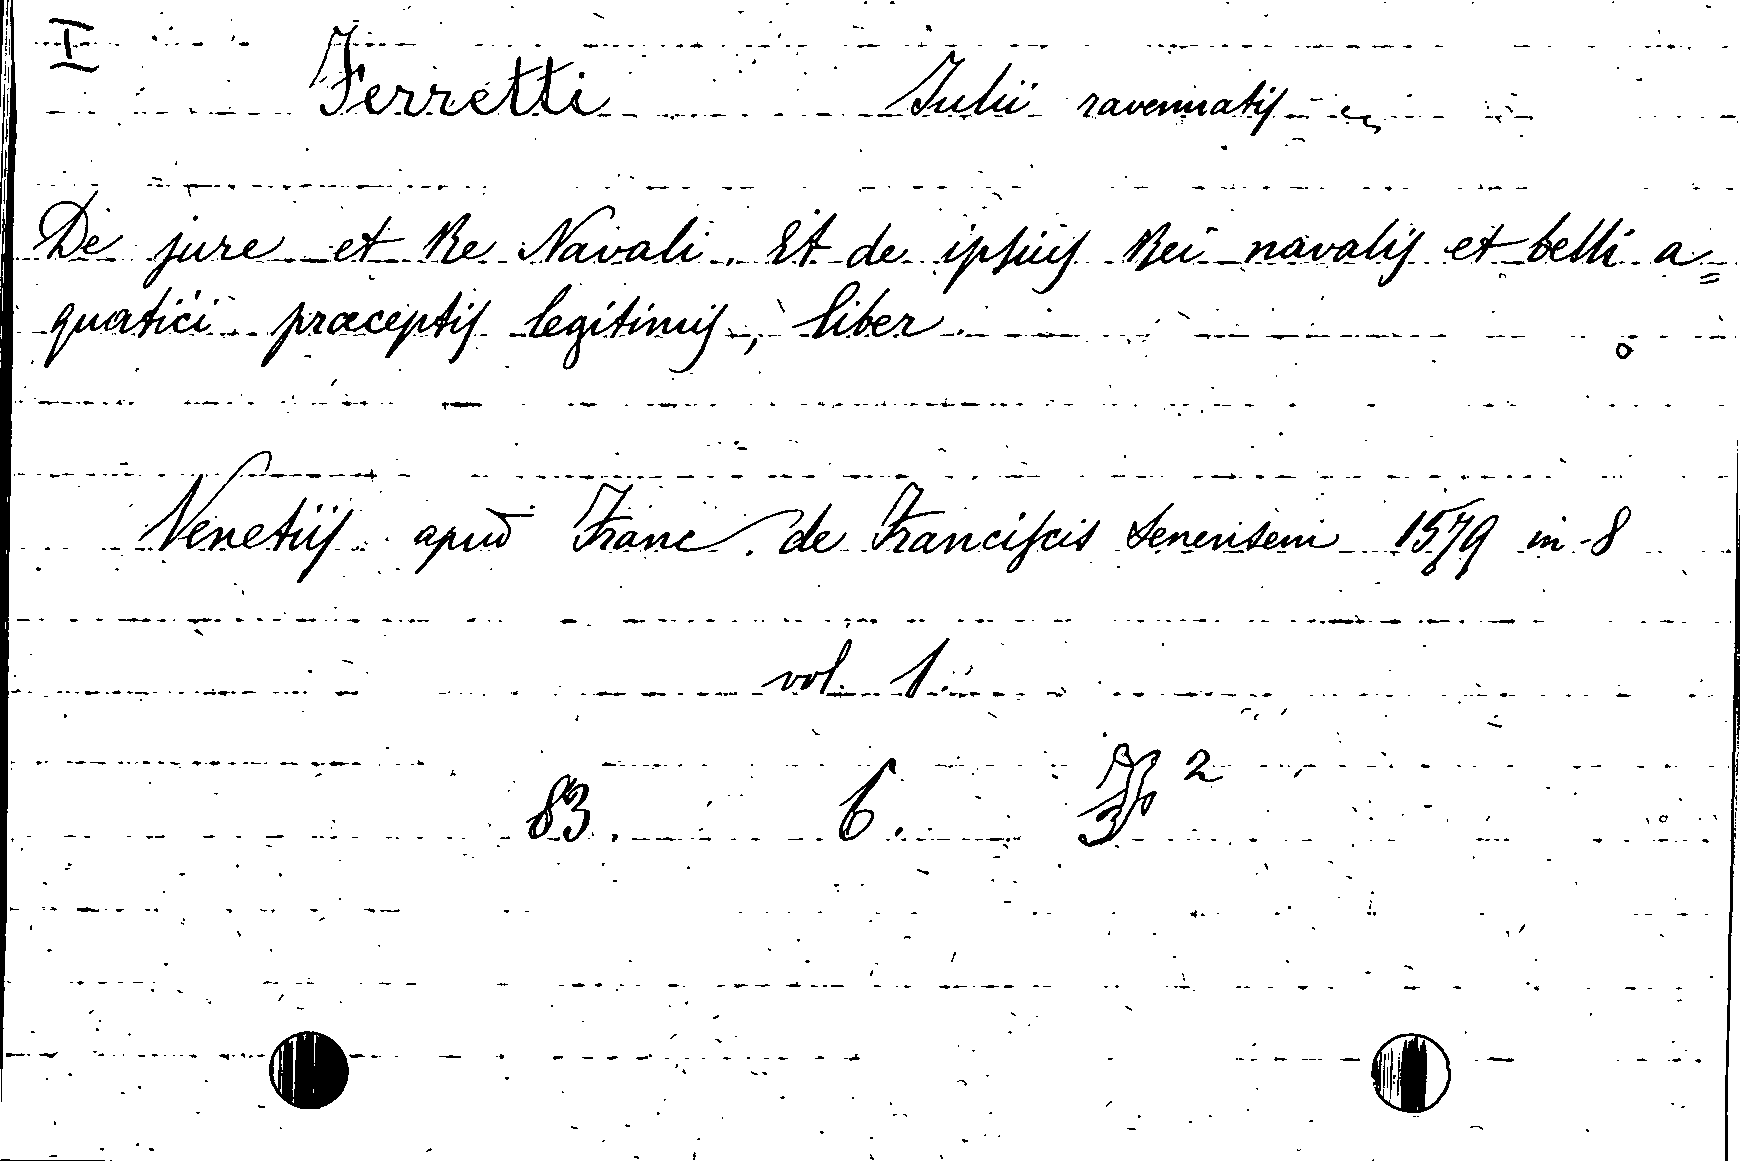 I
Ferretti Julii ravennatis
De jure et Re Navali. Et de ipsius Rei navalis et belli a=
quatici præceptis legitimis, liber.
Venetiis apud Franc. de Franciscis Senensem 1579 in-8
vol. 1.
83. 6. 2